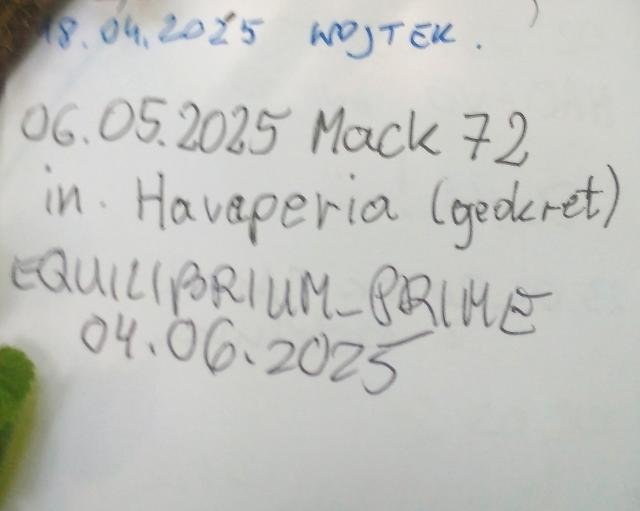 18.04.2025 WOJTEK.
06.05.2025 Mack 72
in. Havaperia (geokret)
EQUILIBRIUM_PRIME
04.06.2025